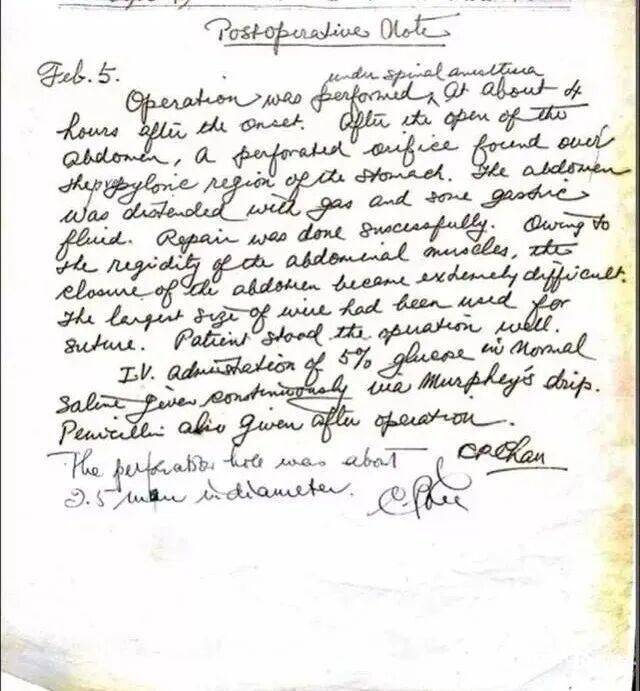 Postoperative Note
Feb. 5.
under spinal anesthesia
Operation was performed, At about 4
hours after the onset. After the open of the
abdomen, a perforated orifice found over
the pyloric region of the stomach. The abdomen
was distended with gas and some gastric
fluid. Repair was done sucessfully. Owing to
the regidity of the abdominal muscles, the
closure of the abdomen became extremely difficult.
The largest size of wire had been used for
suture. Patient stood the operation well.
I.V. adminstration of 5% glucose in Normal
Saline given continuously via Murphey's drip.
Penicillin also given after operation.
The perforation hole was about
2.5 mm in diameter.
C.P. Chan